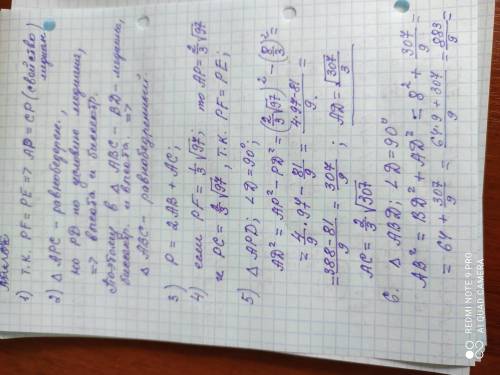 1) т.к. PF = PE => AP = CP (свойство медиан
2) △ APC - равнобедрен.,
но PD по условию медиана,
=> высота и биссектр.
Поэтому в △ ABC - BD - медиана,
биссектр. и высота. =>
△ ABC - равнобедренный
3) P = 2AB + AC;
4) если PF = 1/3 √97; то AP = 2/3 √97
и PC = 2/3 √97, т.к. PF = PE;
5) △ APD; ∠D = 90°;
AD² = AP² - PD² = (2/3 √97)² - (8/3)² =
= 4/9 · 97 - 81/9 = (4·97 - 81)/9 =
= (388 - 81)/9 = 307/9; AD = √307/3
AC = 2/3 √307
6. △ ABD; ∠D = 90°
AB² = BD² + AD² = 8² + 307/9 =
= 64 + 307/9 = (64·9 + 307)/9 = 883/9 =
REDMI NOTE 9 PRO
AI QUAD CAMERA